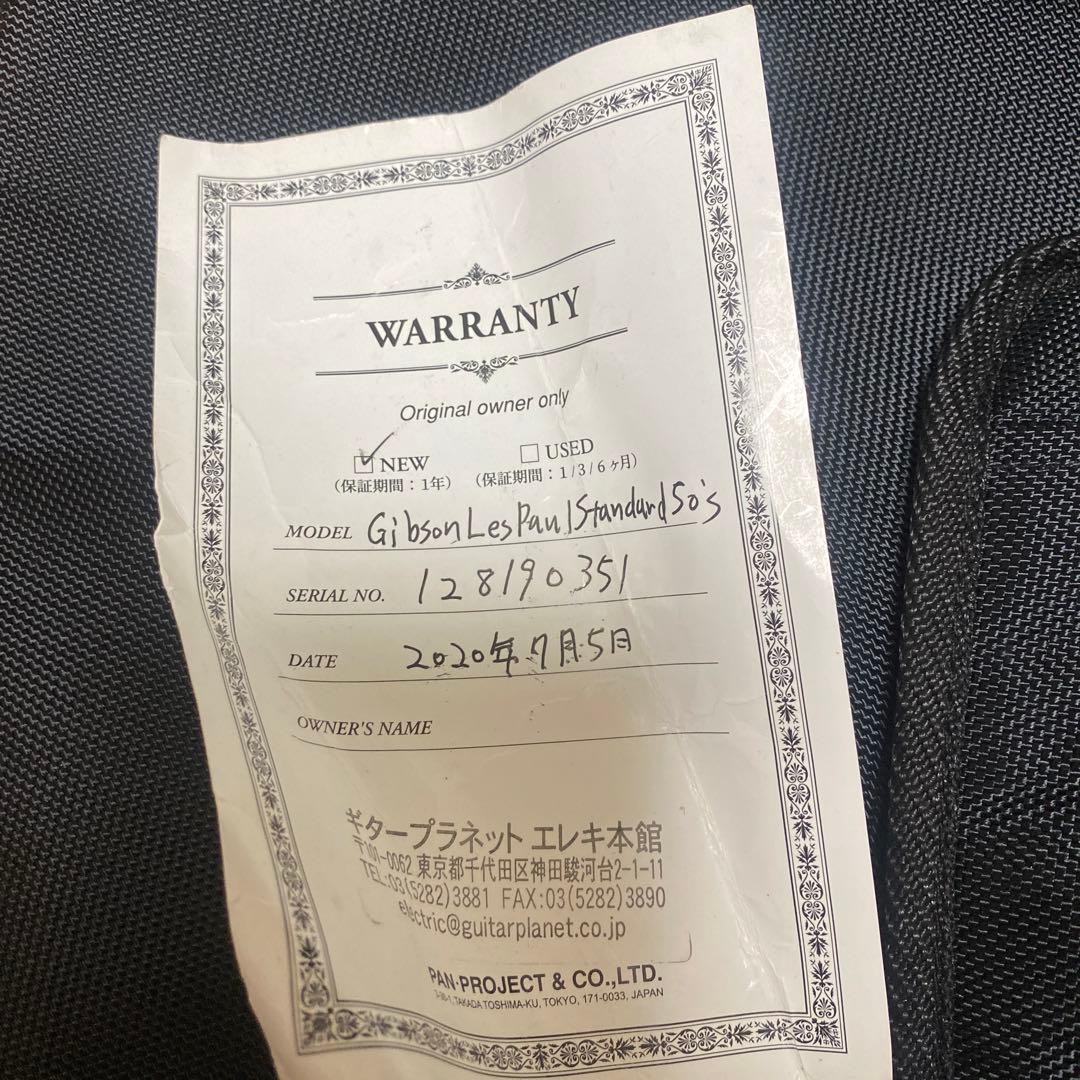 WARRANTY
Original owner only
☑ NEW
（保証期間：1年）
☐ USED
（保証期間：1/3/6ヶ月）
MODEL Gibson Les Paul Standard 50's
SERIAL NO. 128190351
DATE 2020年7月5日
OWNER'S NAME
ギタープラネット エレキ本館
〒101-0062 東京都千代田区神田駿河台2-1-11
TEL:03(5282)3881 FAX:03(5282)3890
electric@guitarplanet.co.jp
PAN·PROJECT & CO.,LTD.
TAKADA TOSHIMA-KU, TOKYO, 171-0033, JAPAN